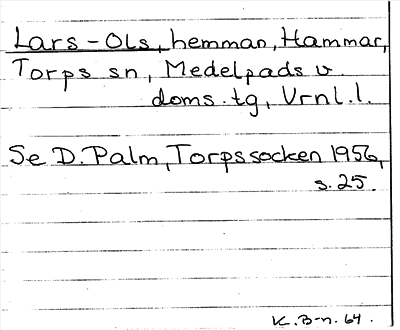 Lars-Ols, hemman, Hammar,
Torps sn, Medelpads v.
doms.tg, Vrnl.l.
Se D. Palm, Torpssocken 1956,
s.25.
K.B-n. 64.